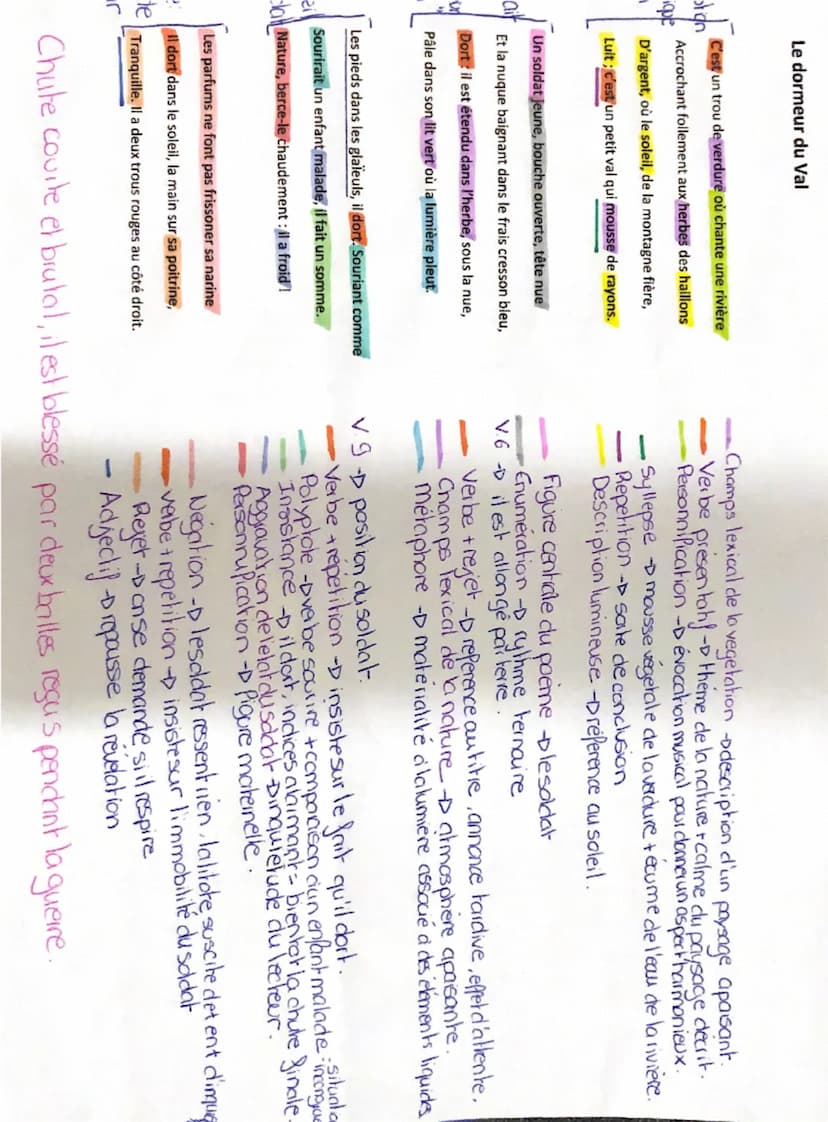 Le dormeur du Val
C'est un trou de verdure où chante une rivière
Accrochant follement aux herbes des haillons
D'argent, où le soleil, de la montagne fière,
Luit ; c'est un petit val qui mousse de rayons.
Champs lexical de la vegetation → description d'un paysage apaisant.
Verbe présentatif → thème de la nature + calme du paysage décrit.
Personnification → évocation musical pour donner un aspect harmonieux.
Syllepse → mousse végétale de la verdure + écume de l'eau de la rivière.
Repetition → sorte de conclusion
Description lumineuse → référence au soleil.
Un soldat jeune, bouche ouverte, tête nue
Et la nuque baignant dans le frais cresson bleu,
Dort : il est étendu dans l'herbe, sous la nue,
Pâle dans son lit vert où la lumière pleut.
Figure centrale du poème → le soldat
Énumération → rythme ternaire
V.6 → il est allongé par terre.
Verbe + rejet → référence au titre, annonce tardive, effet d'attente,
Champs lexical de la nature → atmosphère apaisante.
Métaphore → matérialité à la lumière associé à des éléments liquides
Les pieds dans les glaïeuls, il dort. Souriant comme
Sourirait un enfant malade, il fait un somme.
Nature, berce-le chaudement : il a froid !
V.9 → position du soldat.
Verbe + répétition → insiste sur le fait qu'il dort.
Polyptote → verbe sourire + comparaison d'un enfant malade :
Insistance → il dort, indices alarmant = bientôt la chute finale.
Aggravation de l'état du soldat → inquiétude du lecteur.
Personnification → figure maternelle.
Les parfums ne font pas frissoner sa narine
Il dort dans le soleil, la main sur sa poitrine,
Tranquille. Il a deux trous rouges au côté droit.
Négation → le soldat ressent rien, la litote suscite
Verbe + répétition → insiste sur l'immobilité du soldat
Rejet → on se demande s'il respire
Adjectif → repousse la révélation
Chute courte et brutal, il est blessé par deux balles reçus pendant la guerre.